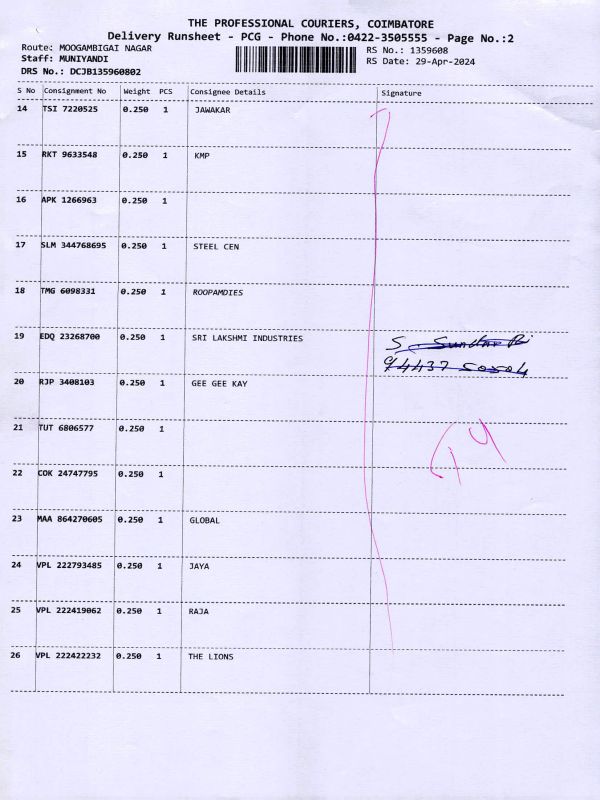 THE PROFESSIONAL COURIERS, COIMBATORE
Delivery Runsheet - PCG - Phone No.:0422-3505555 - Page No.:2
Route: MOOGAMBIGAI NAGAR RS No.: 1359608
Staff: MUNIYANDI RS Date: 29-Apr-2024
DRS No.: DCJB135960802
S No Consignment No Weight PCS Consignee Details Signature
14 TSI 7220525 0.250 1 JAWAKAR
15 RKT 9633548 0.250 1 KMP
16 APK 1266963 0.250 1
17 SLM 344768695 0.250 1 STEEL CEN
18 TMG 6098331 0.250 1 ROOPAMDIES
19 EDQ 23268700 0.250 1 SRI LAKSHMI INDUSTRIES S.
94437 50504
20 RJP 3408103 0.250 1 GEE GEE KAY
21 TUT 6806577 0.250 1
22 COK 24747795 0.250 1
23 MAA 864270605 0.250 1 GLOBAL
24 VPL 222793485 0.250 1 JAYA
25 VPL 222419062 0.250 1 RAJA
26 VPL 222422232 0.250 1 THE LIONS